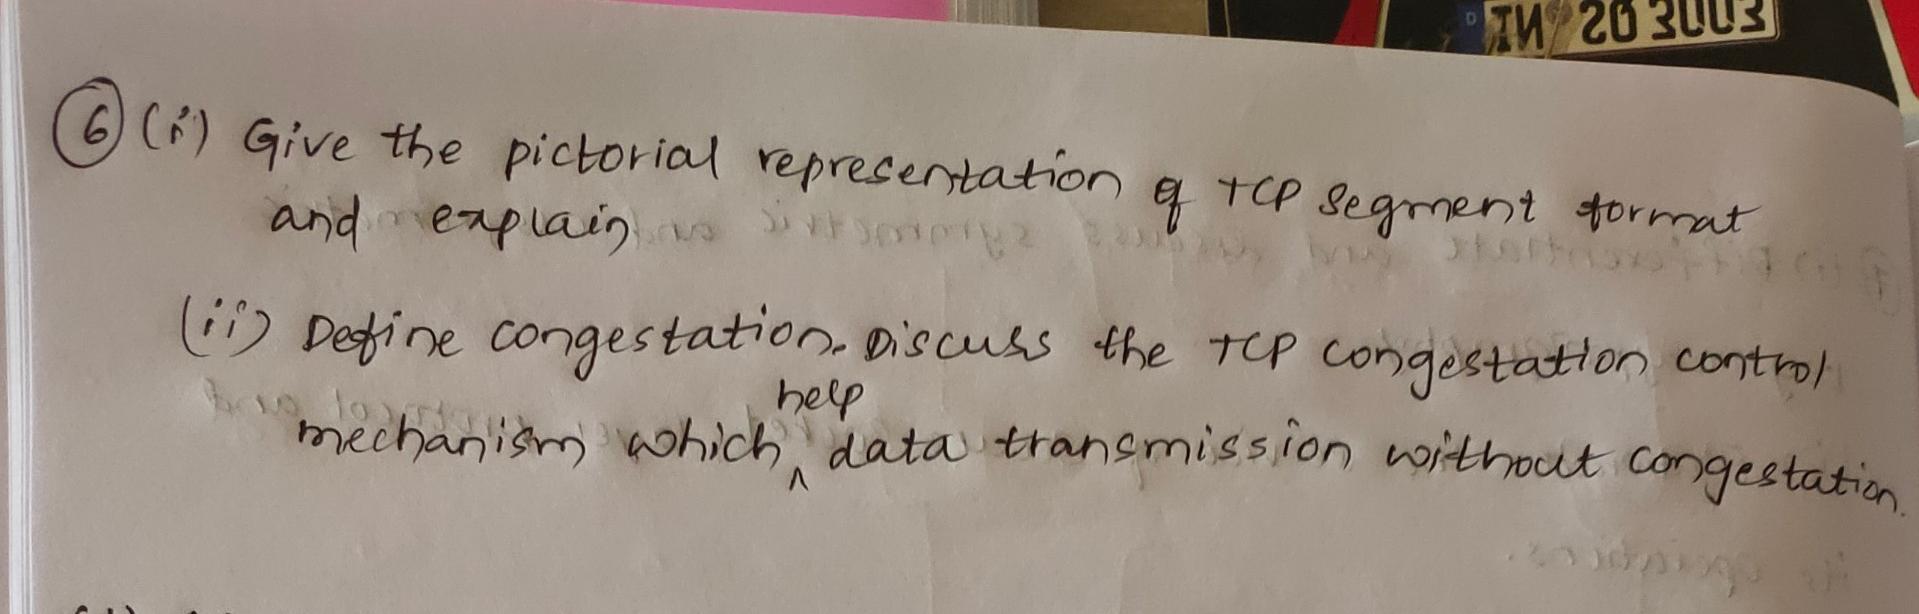 IN 20 3003
6 (i) Give the pictorial representation of TCP segment format
and explain
(ii) Define congestation. Discuss the TCP congestation control
help
mechanism which ^ data transmission without congestation.